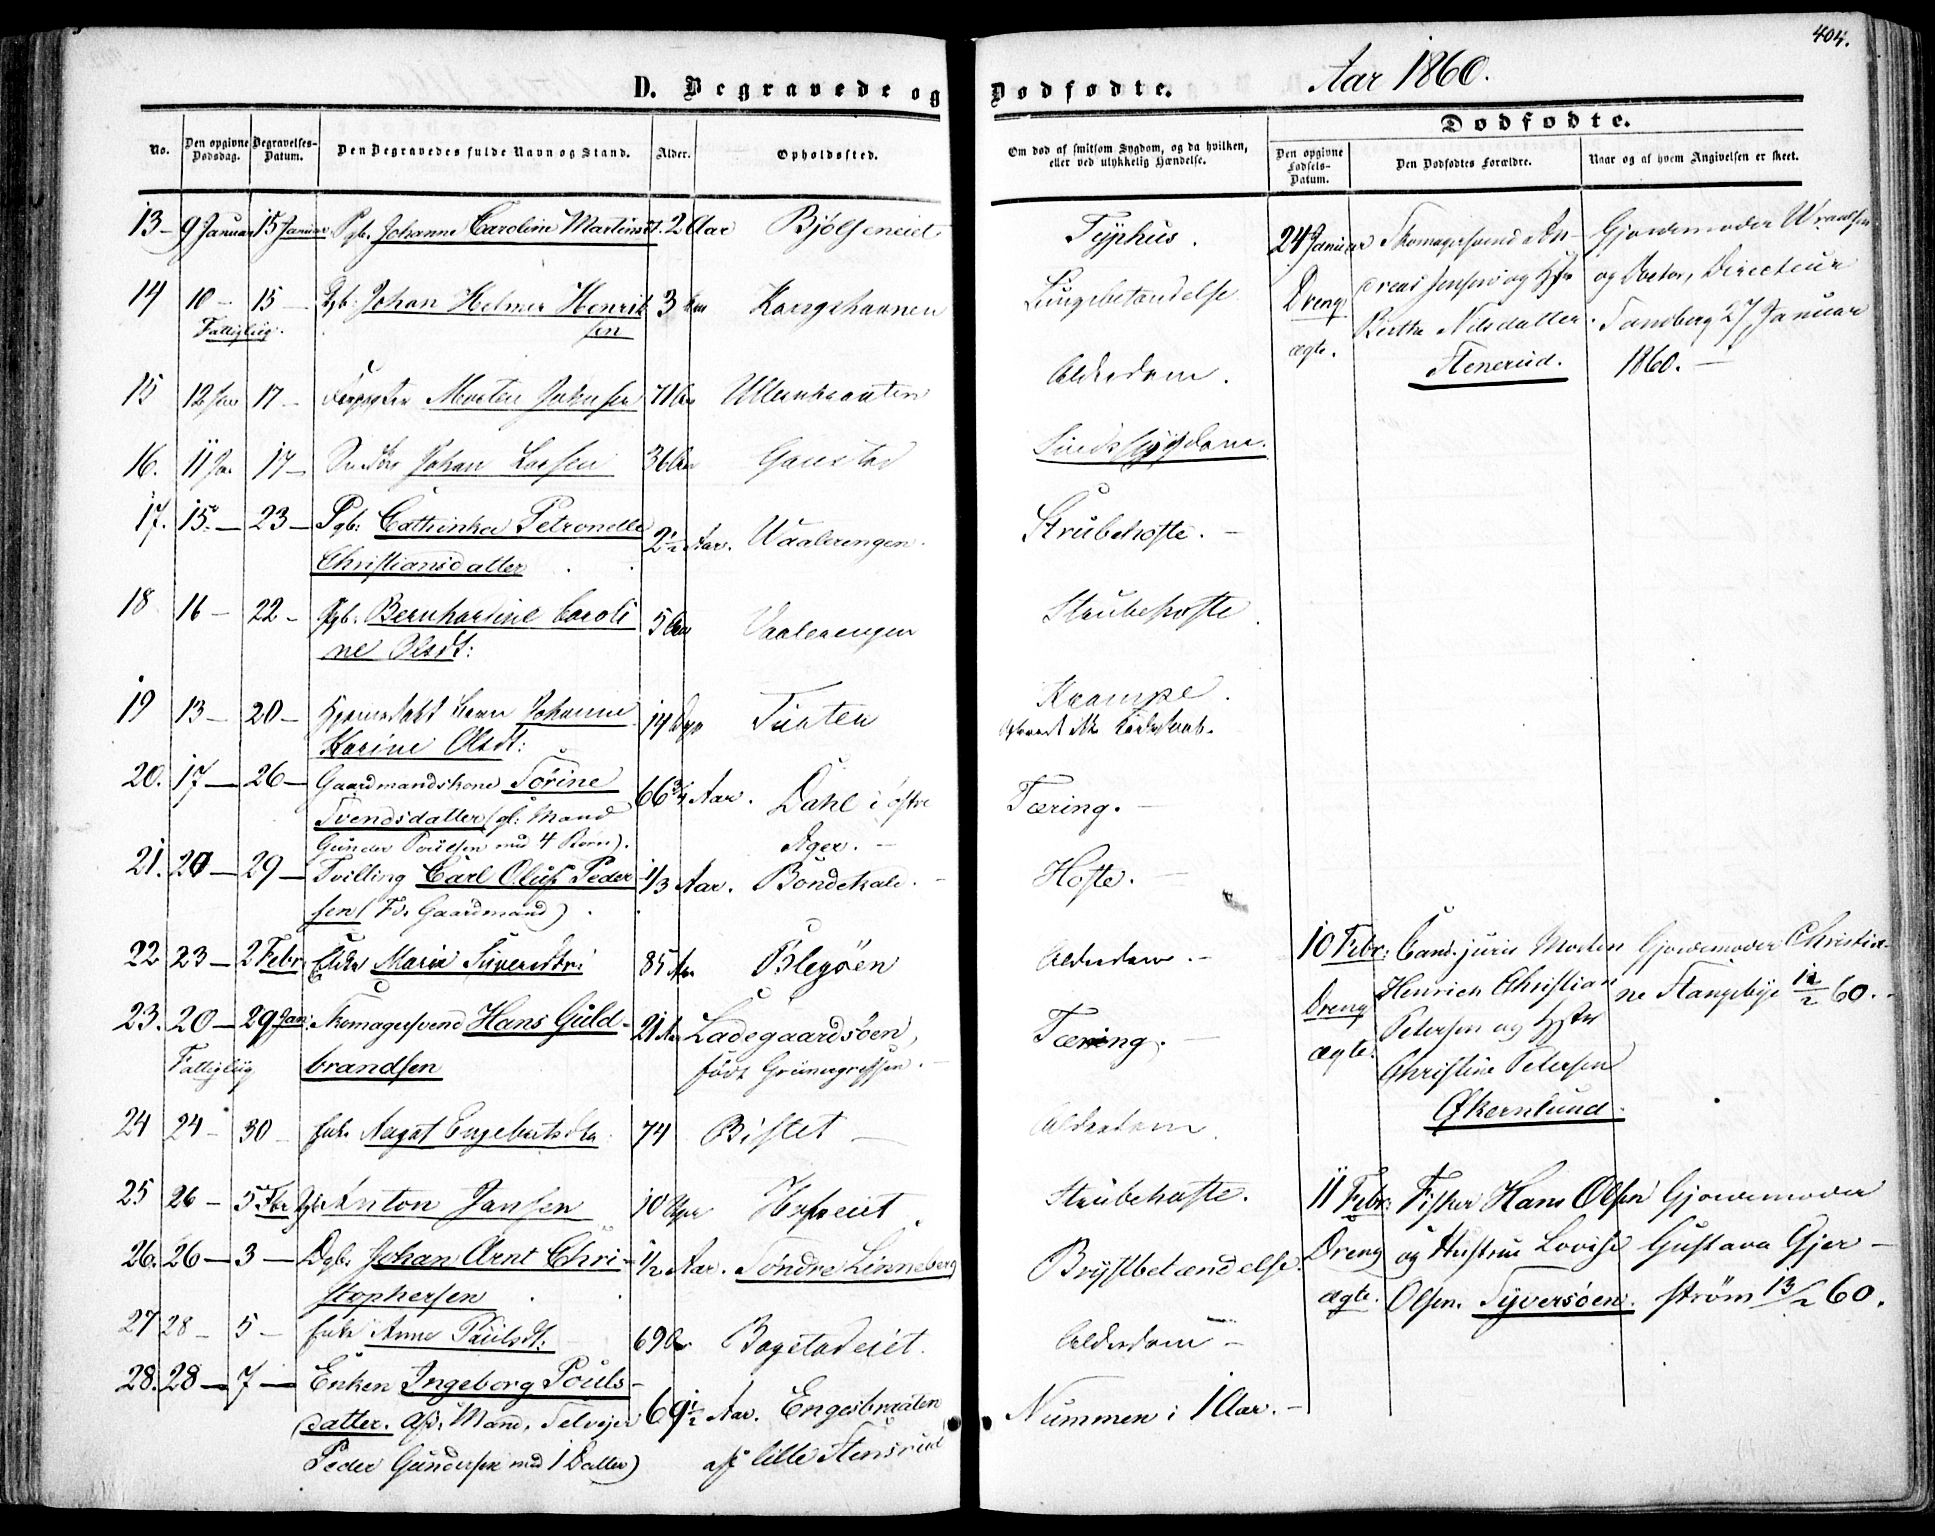 404.
D. Begravede og Dødfødte. Aar 1860.
Dødfødte.
No.
Den opgivne Dødsdag.
Begravelses-Datum.
Den Begravedes fulde Navn og Stand.
Alder.
Opholdssted.
Om død af smitsom Sygdom, og da hvilken, eller ved ulykkelig Hændelse.
Den opgivne Fødsels-Datum.
Den Dødfødtes Forældre.
Naar og af hvem Angivelsen er skeet.
13 9 Januar 15 Januar Pgb. Johanne Caroline Martinsdt. 2 Aar Bjølseneiet Typhus.
14 10 – 15 – Dgb. Johan Helmer Henrik 3 Kongshavnen Lungebetændelse
Fattiglig. sen
15 12 Jan 17 – Morten Johnsen 71 Aar Ullernbraaten Alderdom.
16. 11 Jan 17 – Johan Larsen 36 Aar Gaustad Sindssygdom.
17. 15. – 23 – Pgb. Cathrinka Petronelle 2½ Aar. Vaalerengen. Strubehoste. –
Christiansdatter
18 16 – 22 – Pgb. Bernhardine Caroli 5 Aar Vaalerengen Strubehoste
ne Olsdt:
19 13 – 20 – Hjemmedøbt Barn Johanne 14 Dage Tuaten Krampe.
Karine Olsdt:
20. 17 – 26 – Gaardmandskone Torine 66¾ Aar. Dahl i østre Tæring. –
Svendsdatter (gl: Mand
Gunder Poulsen med 4 Børn). Ager. –
21. 20 – 29 – Tvilling Carl Oluf Peder 1/3 Aar. Bondekale. – Hoste. –
sen (Fd. Gaardmand)
22 23 – 2 Febr. Enke Maria Sivertsdtr: 85 Aar Blegøen Alderdom. –
23. 20 – 29 Jan: Skomagersvend Hans Guld- 21 Aar Ladegaardsøen, Tæring. –
Fattiglig brandsen født Grünergryssen. –
24 24 – 30 – Enke Aagot Engebretsdtr. 74 Bislet – Alderdom.
25 26 – 5 Feb Anton Jansen 10 Hofseiet Strubehoste.
26. 26 – 3 – Dgb. Johan Arnt Chri- ½ Aar. Søndre Linneberg Brystbetændelse.
stophersen
27 28 – 5 – Enke Anne Paulsdt: 69 Aar Bogstadeiet. Alderdom –
28. 28 – 7 – Enken Ingeborg Pouls- 69½ Aar. Engesbraaten Nummen i 1 Aar. –
datter. Afd: Mand, Selveier af lille Stensrud
Peder Gundersen med 1 Datter)
24 Januar Skomagersvend An- Gjordemoder Wraalsen
Dreng dreas Jensen og Hst og Doctor, Directeur
ægte. Berthe Nilsdatter. Sandberg 27 Januar
Stenerud. 1860. –
10 Febr: Cand. juris Morten Gjordemoder Christia-
Dreng Henrich Christian ne Stangebye 12/2 60. –
ægte. Petersen og Hstr
Christine Petersen
Økernlund.
11 Febr: Fisker Hans Olsen Gjordemoder
Dreng og Hustrue Lovise Gustava Gjer-
ægte. Olsen. Tyversøen. strøm 13/2 60.